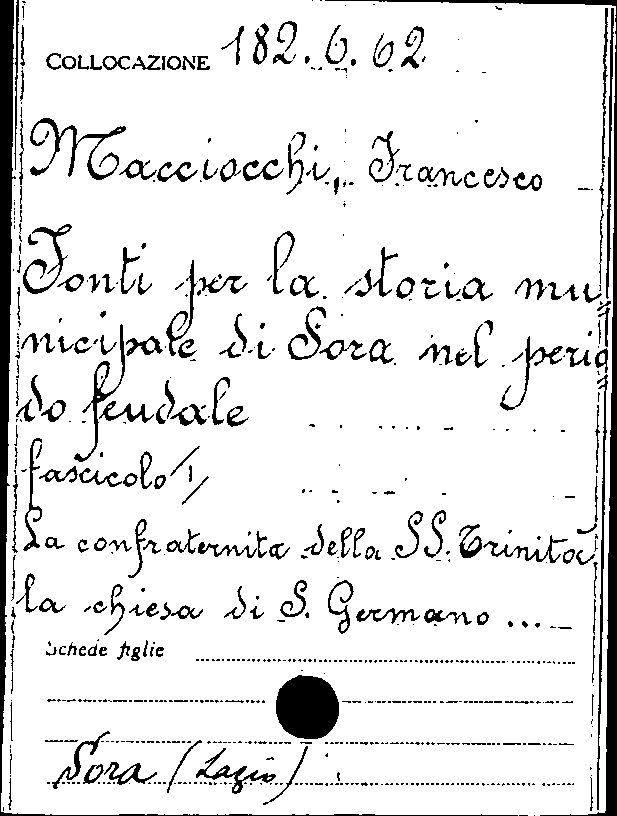 COLLOCAZIONE 182.6.62
Macciocchi, Francesco
Fonti per la storia mu
nicipale di Sora nel perio
do feudale
fascicolo 1
La confraternita della SS. Trinità
la chiesa di S. Germano ...
Schede figlie
Sora (Lazio)